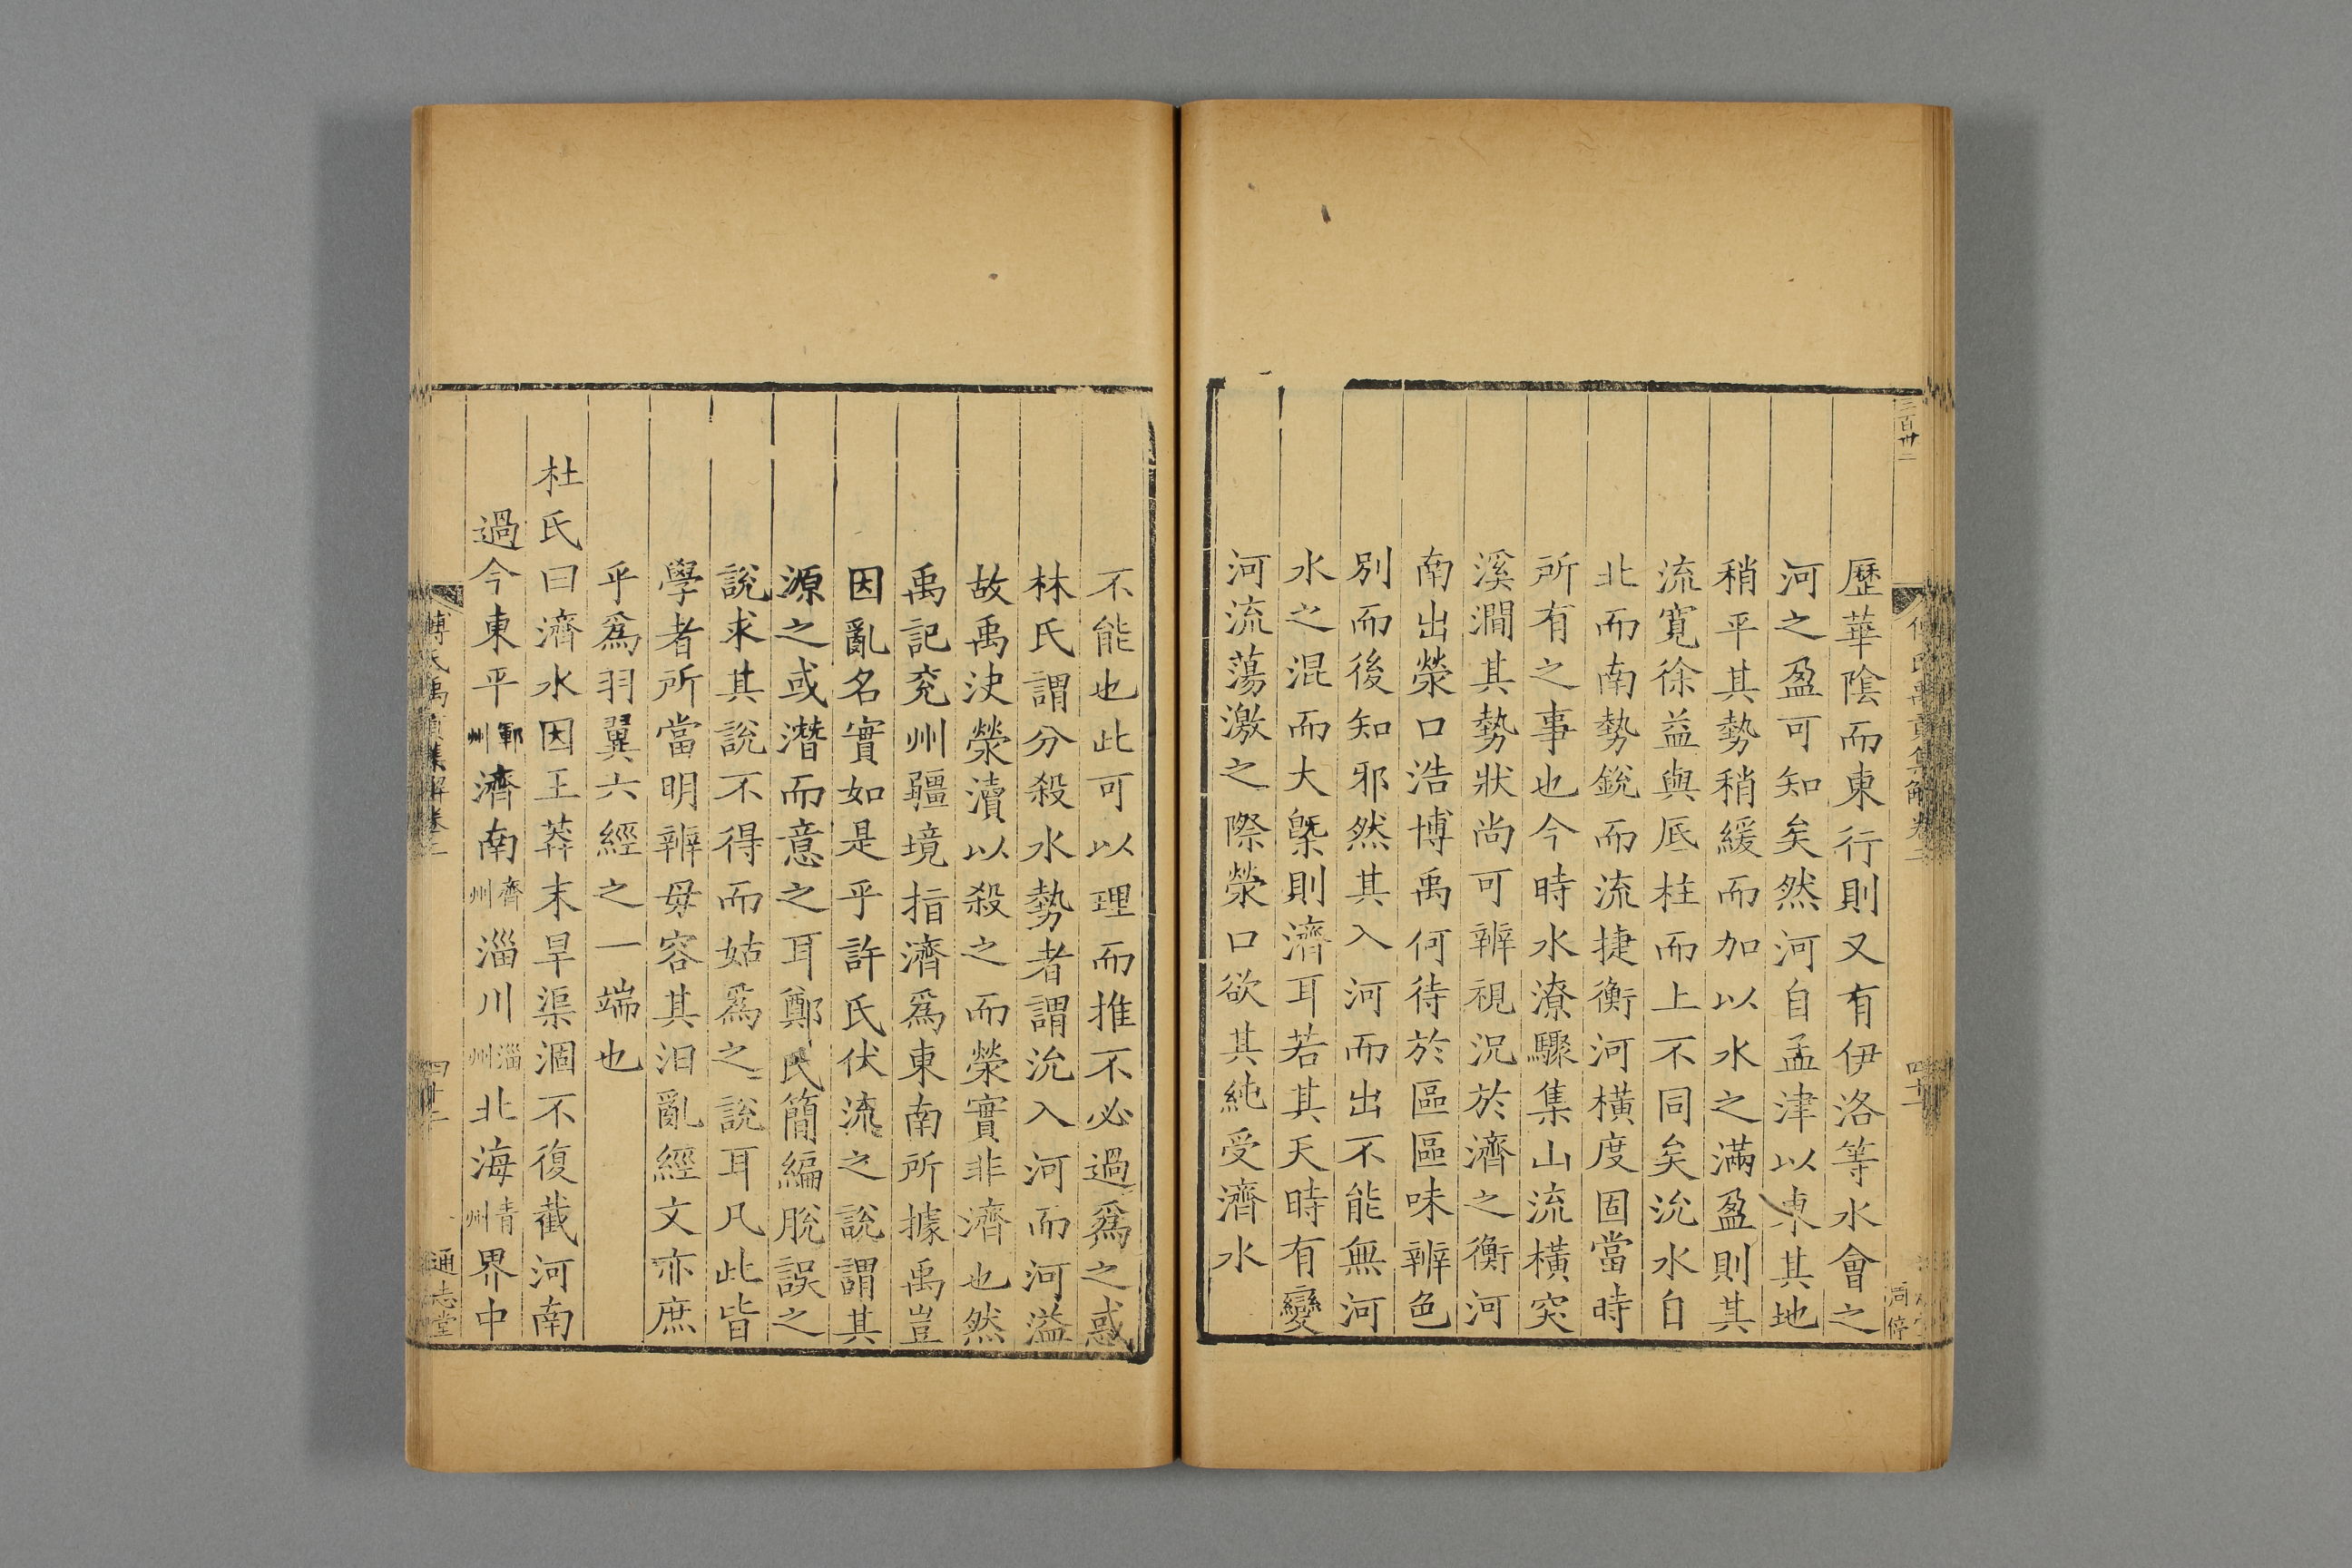 三百卅二
歷華陰而東行則又有伊洛等水會之
河之盈可知矣然河自孟津以東其地
稍平其勢稍緩而加以水之滿盈則其
流寬徐益與底柱而上不同矣沇水自
北而南勢銳而流捷衡河橫度固當時
所有之事也今時水潦驟集山流橫突
溪澗其勢狀尚可辨視況於濟之衡河
南出滎口浩博禹何待於區區味辨色
別而後知邪然其入河而出不能無河
水之混而大槩則濟耳若其天時有變
河流蕩激之際滎口欲其純受濟水
不能也此可以理而推不必過爲之惑
林氏謂分殺水勢者謂沇入河而河溢
故禹決滎瀆以殺之而滎實非濟也然
禹記兖州疆境指濟爲東南所據禹豈
因亂名實如是乎許氏伏流之說謂其
源之或潛而意之耳鄭氏簡編脫誤之
說求其說不得而姑爲之說耳凡此皆
學者所當明辨毋容其汩亂經文亦庶
乎爲羽翼六經之一端也
杜氏曰濟水因王莽末旱渠涸不復截河南
過今東平鄆州濟南齊州淄川淄州北海青州界中
傅氏禹貢集解卷二
四十二
通志堂